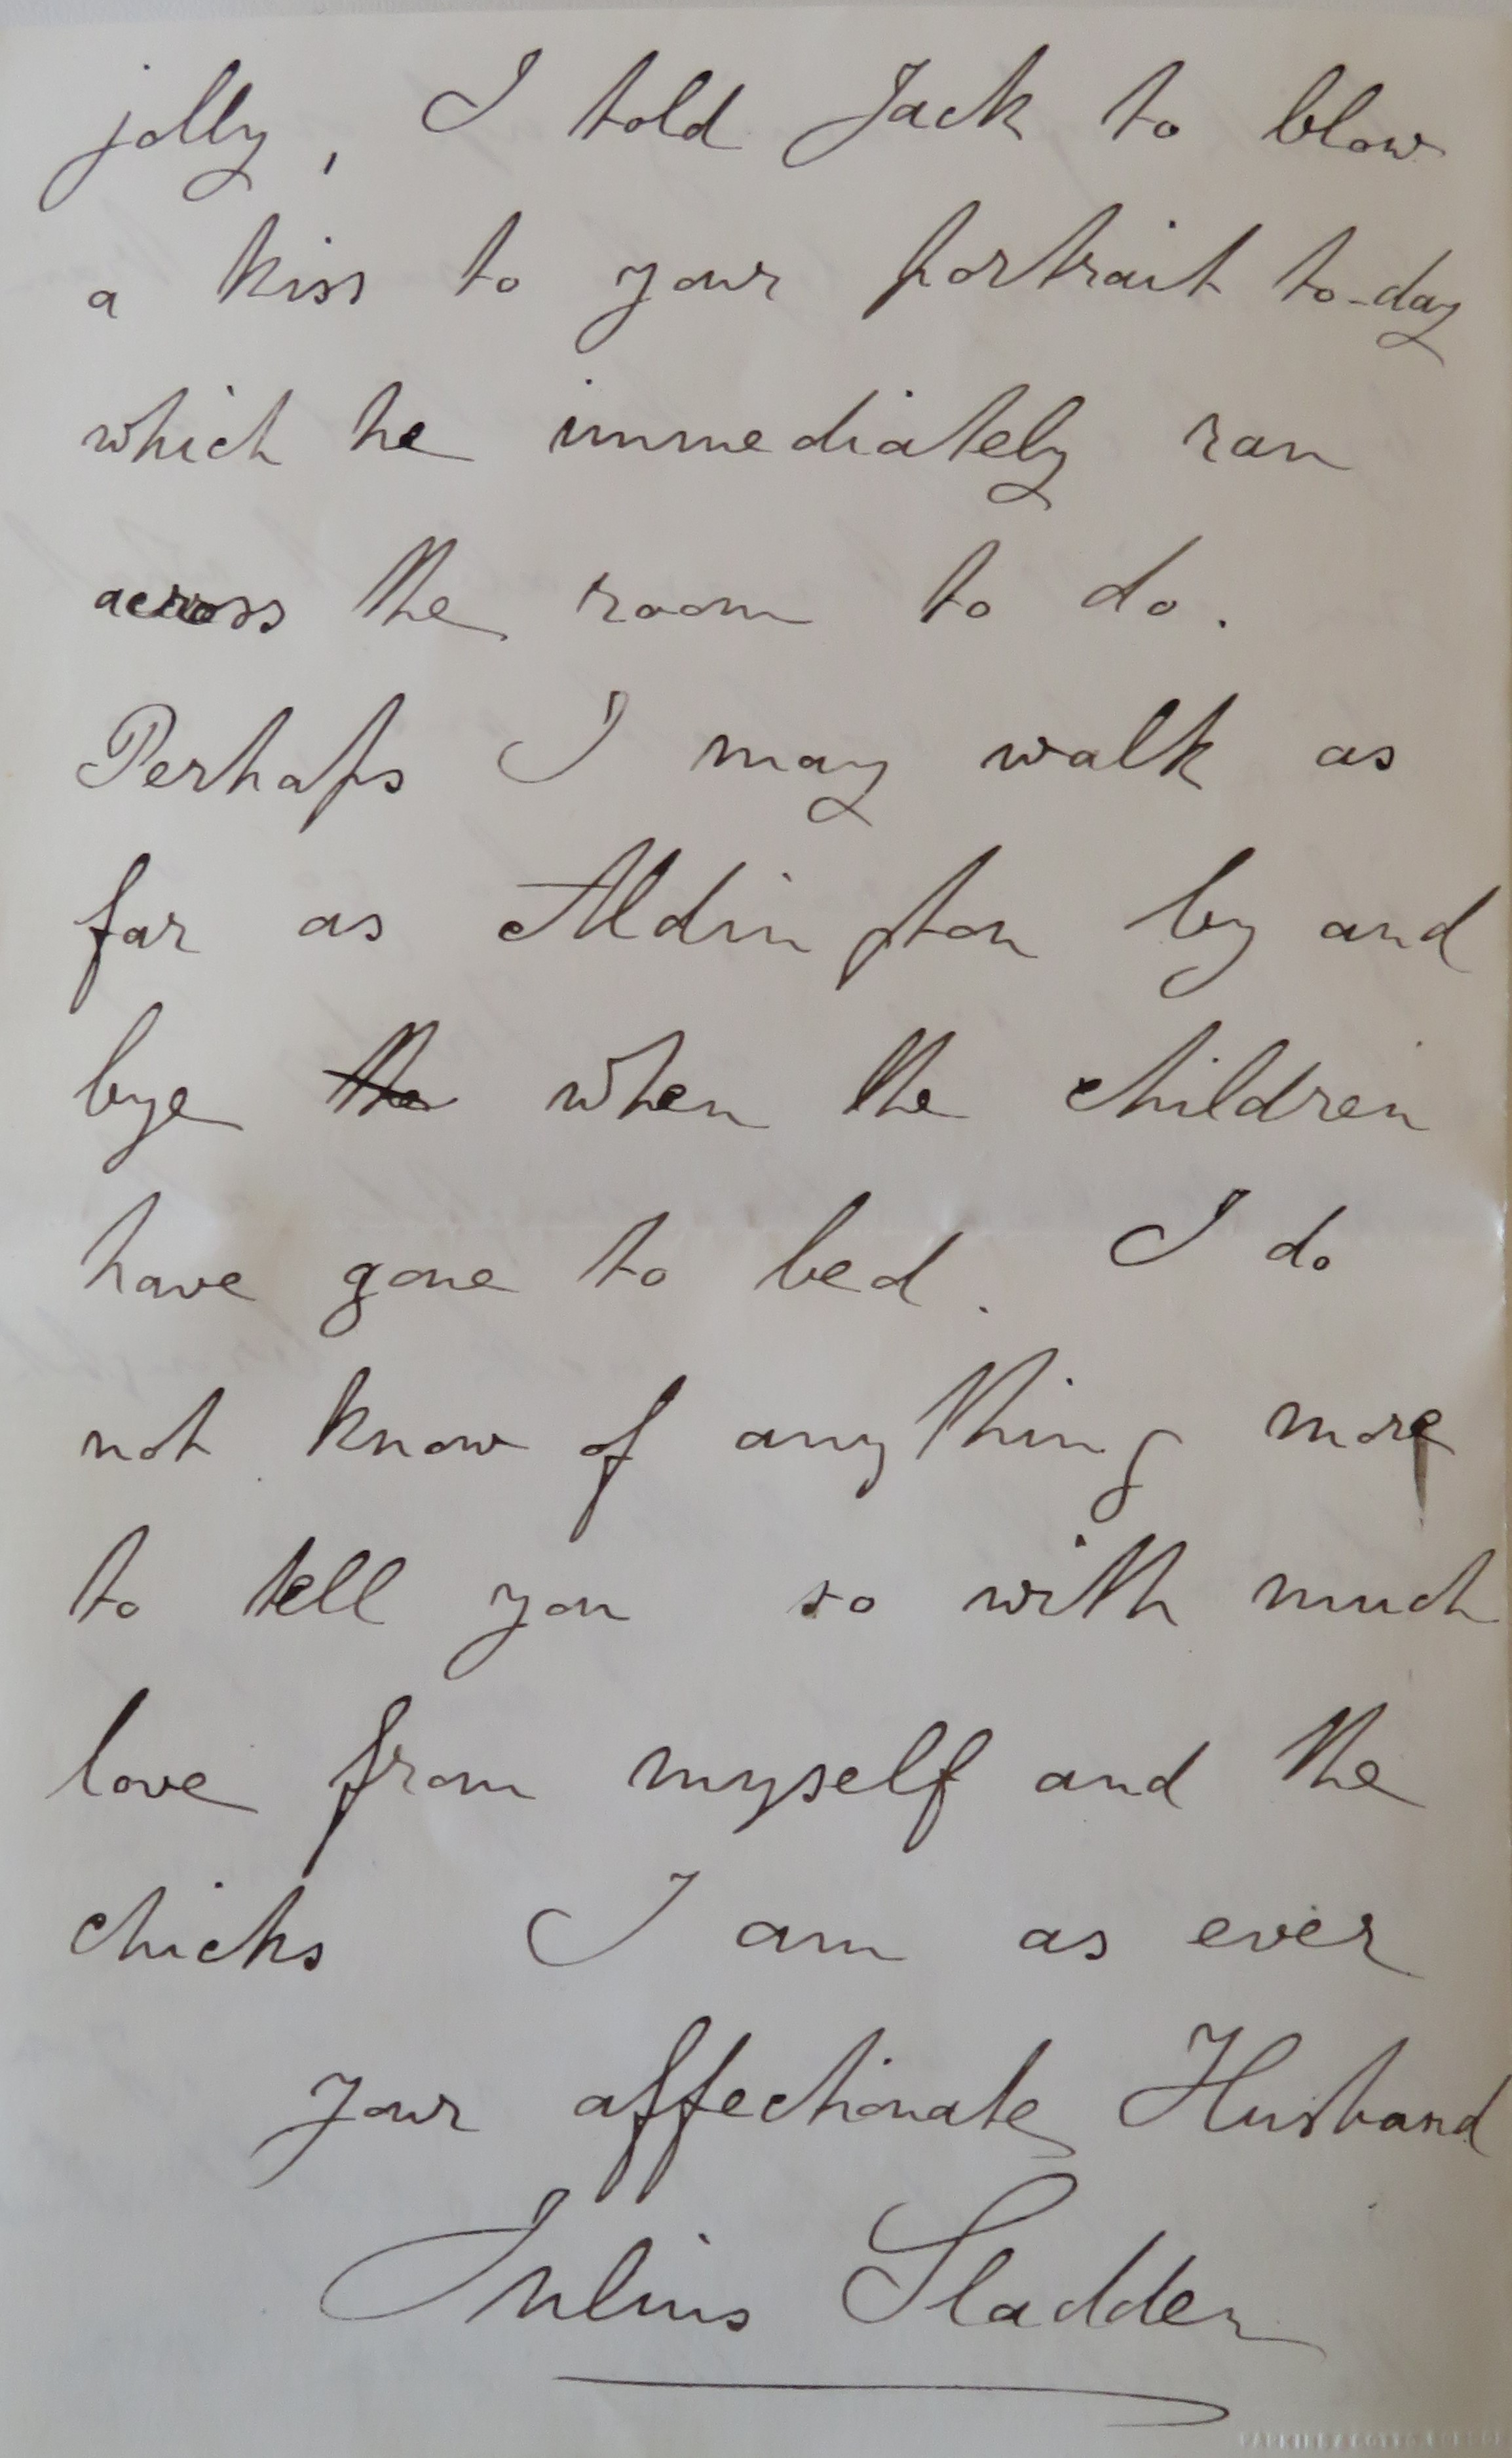 jolly, I told Jack to blow
a kiss to your portrait to-day
which he immediately ran
across the room to do.
Perhaps I may walk as
far as Aldington by and
bye the when the children
have gone to bed. I do
not know of anything more
to tell you so with much
love from myself and the
chicks I am as ever
your affectionate Husband
Julius Sladden